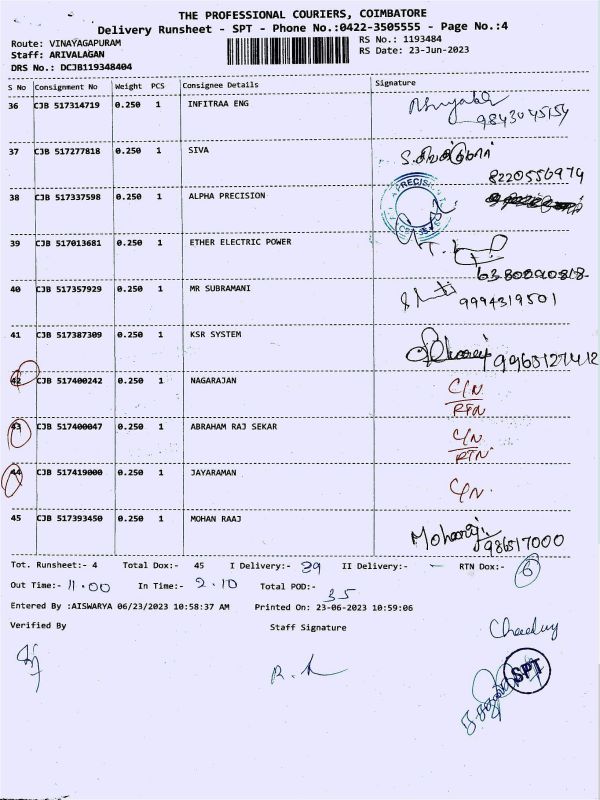 THE PROFESSIONAL COURIERS, COIMBATORE
Delivery Runsheet - SPT - Phone No.:0422-3505555 - Page No.:4
Route: VINAYAGAPURAM RS No.: 1193484
Staff: ARIVALAGAN RS Date: 23-Jun-2023
DRS No.: DCJB119348404
S No Consignment No Weight PCS Consignee Details Signature
36 CJB 517314719 0.250 1 INFITRAA ENG
9843045154
37 CJB 517277818 0.250 1 SIVA
8220556974
38 CJB 517337598 0.250 1 ALPHA PRECISION
39 CJB 517013681 0.250 1 ETHER ELECTRIC POWER
6380290818
40 CJB 517357929 0.250 1 MR SUBRAMANI
9994319501
41 CJB 517387309 0.250 1 KSR SYSTEM
9965127412
42 CJB 517400242 0.250 1 NAGARAJAN C/N
RTN
43 CJB 517400047 0.250 1 ABRAHAM RAJ SEKAR C/N
RTN
44 CJB 517419000 0.250 1 JAYARAMAN C/N.
45 CJB 517393450 0.250 1 MOHAN RAAJ
Tot. Runsheet:- 4 Total Dox:- 45 I Delivery:- 39 II Delivery:- - RTN Dox:- 6
Out Time:- 11.00 In Time:- 2.10 Total POD:- 35
Entered By :AISWARYA 06/23/2023 10:58:37 AM Printed On: 23-06-2023 10:59:06
Verified By Staff Signature
SPT